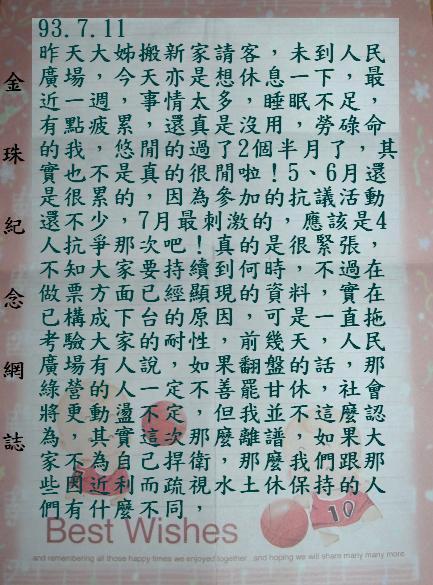 93.7.11
昨天大姊搬新家請客，未到人民
廣場，今天亦是想休息一下，最
近一週，事情太多，睡眠不足，
有點疲累，還真是沒用，勞碌命
的我，悠閒的過了2個半月了，其
實也不是真的很閒啦！5、6月還
是很累的，因為參加的抗議活動
還不少，7月最刺激的，應該是4
人抗爭那次吧！真的是很緊張，
不知大家要持續到何時，不過在
做票方面已經顯現的資料，實在
已構成下台的原因，可是一直拖
考驗大家的耐性，前幾天，人民
廣場有人說，如果翻盤的話，那
綠營的人一定不善罷甘休，社會
將更動盪不定，但我並不這麼認
為，其實這次那麼離譜，如果大
家不為自己捍衛，那麼我們跟那
些因近利而疏視水土休保持的人
們有什麼不同，
金珠紀念網誌
Best Wishes
and remembering all those happy times we enjoyed together...and hoping we will share many many more